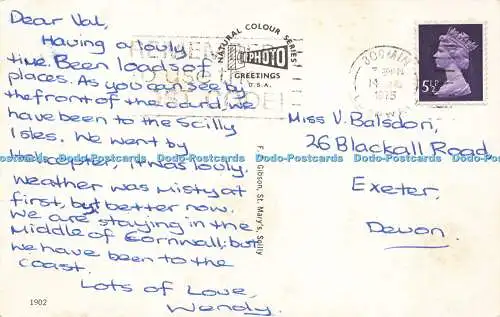 Dear Val,
Having a louly
time. Been loads of
places. As you can see by
the front of the card, we
have been to the Scilly
Isles. We went by
Helicopter, it was louly.
weather was misty at
first, but better now.
we are staying in the
Middle of Cornwall, but
we have been to the
coast.
Lots of Love,
Wendy.
1902
NATURAL COLOUR SERIES
PHOTO
GREETINGS
U.S.A.
REMEMBER
TO USE THE
POSTCODE
F. E. Gibson, St. Mary's, Scilly
BODMIN
1975
5½P
Miss V. Balsdon,
26 Blackall Road,
Exeter,
Devon.
Dodo-Postcards Dodo-Postcards Dodo-Postcards Dodo-Postcards Dodo-Postcards Dodo-Postcards